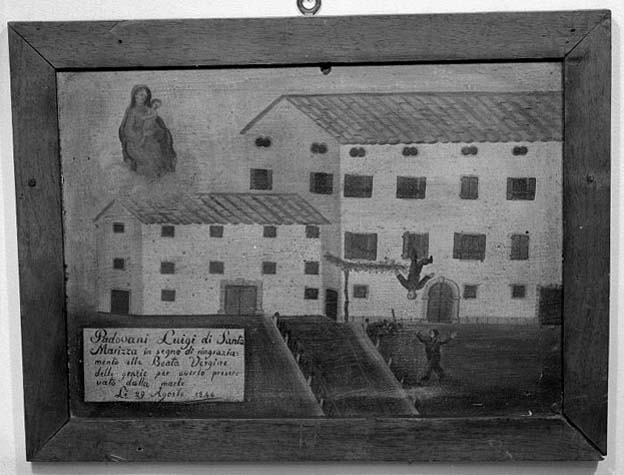 Padovani Luigi di Santa
Marizza in segno di ringrazia-
mento alla Beata Vergine
delle grazie per averlo preser-
vato dalla morte
Li 29 Agosto 1846